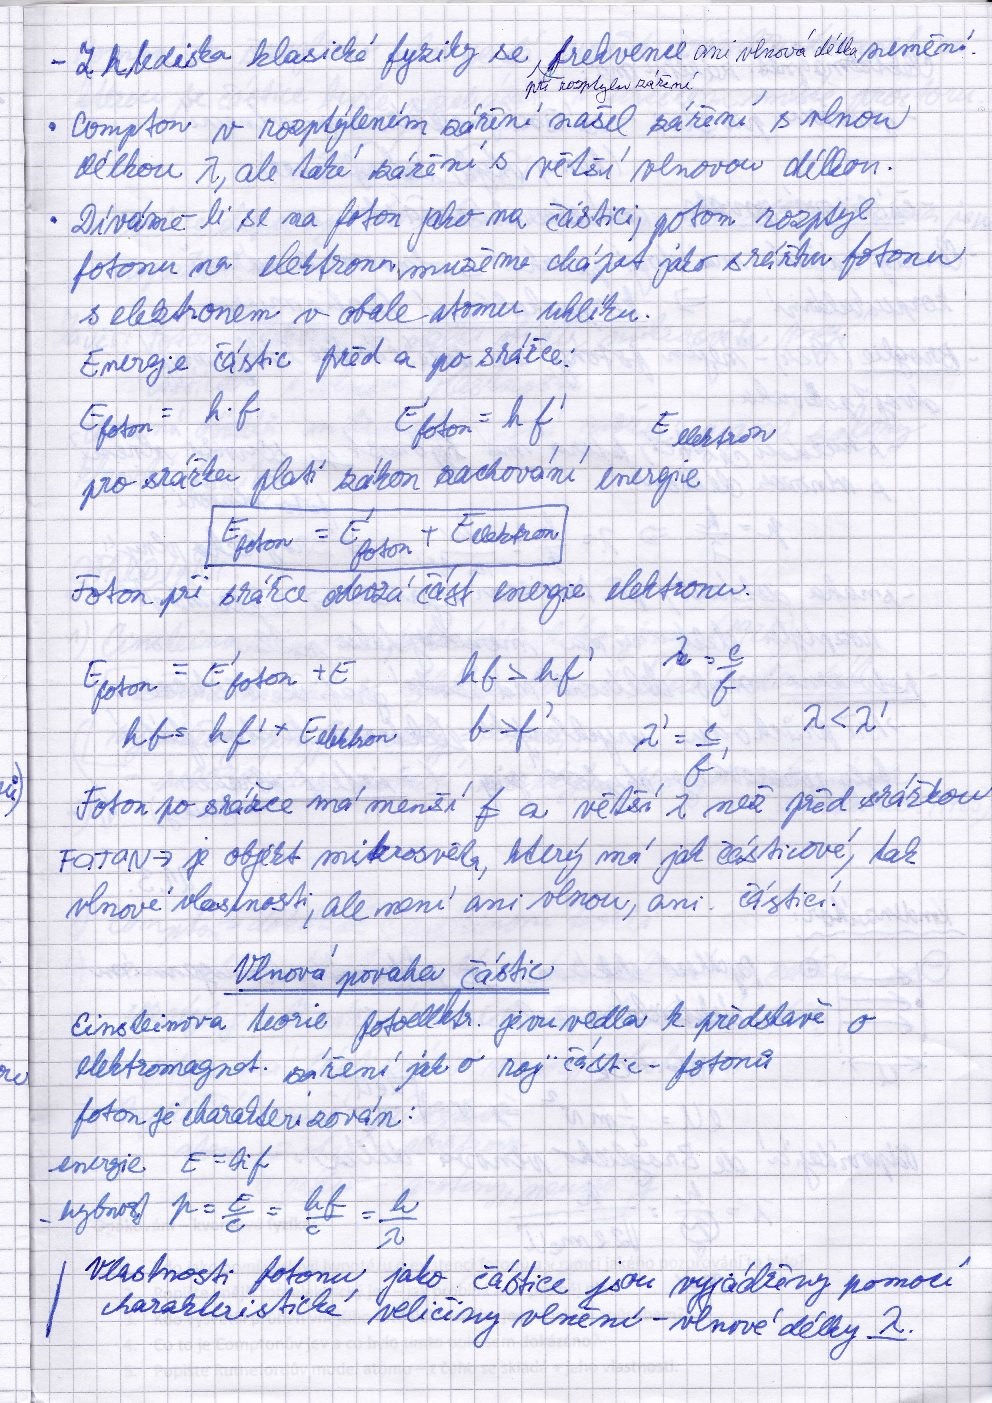 - Z hlediska klasické fyziky se frekvence ani vlnová délka nemění.
při rozptylu záření
• Compton v rozptýleném záření našel záření s vlnou
délkou λ, ale také záření s větší vlnovou délkou.
• Díváme li se na foton jako na částici, potom rozptyl
fotonu na elektronu můžeme chápat jako srážku fotonu
s elektronem v obale atomu uhlíku.
Energie částic před a po srážce:
E foton = h·f E' foton = h f' E elektron
pro srážku platí zákon zachování energie
E foton = E' foton + E elektron
Foton při srážce odevzdá část energie elektronu.
E foton = E' foton + E hf > hf' λ = c/f
hf = hf' + E elektron f > f' λ' = c/f' λ < λ'
Foton po srážce má menší f a větší λ než před srážkou
FOTON → je objekt mikrosvěta, který má jak částicové, tak
vlnové vlastnosti, ale není ani vlnou, ani částicí!
Vlnová povaha částic
Einsteinova teorie fotoelektr. jevu vedla k představě o
elektromagnet. záření jako roj částic - fotonů
foton je charakterizován:
energie E = h·f
- hybnost p = E/c = hf/c = h/λ
Vlastnosti fotonu jako částice jsou vyjádřeny pomocí
charakteristické veličiny vlnění - vlnové délky λ.